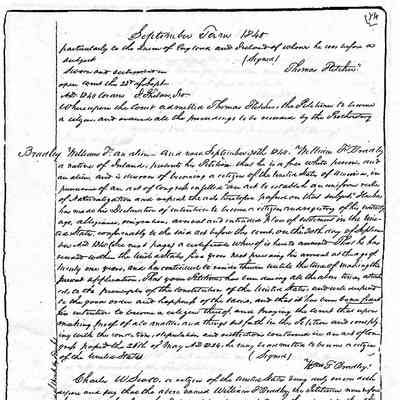 September Term 1840
particularly to the Queen of England and Ireland of whom he was before a
subject (Signed)
Sworn and subscribed in Thomas Fletcher"
open Court this 28th of Sept
AD 1840
Whereupon the Court admitted Thomas Fletcher the Petitioner to become
a citizen and ordered all the proceedings to be recorded by the Prothonotary
Bradley William F. an alien And now September 30th 1840. "William F. Bradley
a native of Ireland, presents his Petition that he is a free white person, and
an alien, and is desirous of becoming a citizen of the United States of America, in
pursuance of an act of Congress entitled "an act to establish an uniform rule
of Naturalization and repeal the acts heretofore passed on that subject" that he
has made his Declaration of intention to become a citizen and registry of his nativity
age, allegiance, emigration, arrival and intended place of settlement in the Uni-
ted States, conformably to the said act before the court, on the day of Septem-
ber AD a certificate whereof is hereto annexed. That he has
resided within the United States five years next preceding his arrival at the age of
twenty one years, and has continued to reside therein until the time of making the
present application. That your Petitioner has been during all the above time, attach-
ed to the principles of the Constitution of the United States and well disposed
to the good order and happiness of the same, and that it has been bona fide
his intention to become a citizen thereof, and praying the Court that upon
making proof of all matters and things set forth in the Petition and comply-
ing with the conditions, stipulations and restrictions contained in an act of Con-
gress passed the 26th of May AD 1824. he may be admitted to become a citizen
of the United States (Signed)
"Wm F. Bradley."
Charles W. a citizen of the United States being duly sworn doth
depose and say that the above named William F. Bradley the Petitioner came before